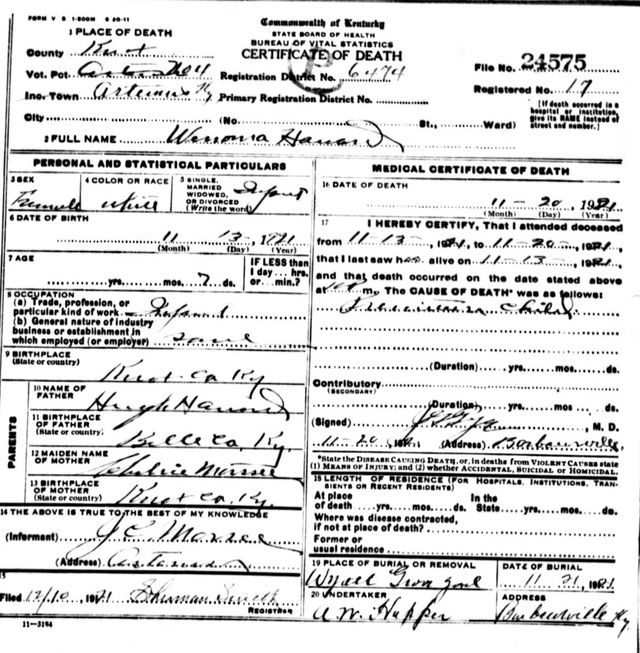 FORM V S 1-500M 6 30-11
Commonwealth of Kentucky
STATE BOARD OF HEALTH
BUREAU OF VITAL STATISTICS
CERTIFICATE OF DEATH
1 PLACE OF DEATH
County Knox
Vot. Pct
Inc. Town Artemus Ky
City (No. St., Ward)
Registration District No. 6474
Primary Registration District No.
File No. 24575
Registered No. 17
[If death occurred in a
hospital or institution,
give its NAME instead of
street and number.]
2 FULL NAME
PERSONAL AND STATISTICAL PARTICULARS
3 SEX
Female
4 COLOR OR RACE
White
5 SINGLE,
MARRIED
WIDOWED,
OR DIVORCED
(Write the word)
Infant
6 DATE OF BIRTH
11 13 1921
(Month) (Day) (Year)
7 AGE
yrs. mos. 7 ds.
IF LESS than
1 day... hrs.
or min.?
8 OCCUPATION
(a) Trade, profession, or
particular kind of work Infant
(b) General nature of industry
business or establishment in
which employed (or employer)
9 BIRTHPLACE
(State or country)
Knox Co Ky
PARENTS
10 NAME OF
FATHER
Hugh
11 BIRTHPLACE
OF FATHER
(State or country)
Belle Co. Ky.
12 MAIDEN NAME
OF MOTHER
13 BIRTHPLACE
OF MOTHER
(State or country)
Knox Co Ky.
14 THE ABOVE IS TRUE TO THE BEST OF MY KNOWLEDGE
(Informant) J.C.
(Address)
15
Filed 12/10 1921
REGISTRAR
11-3184
MEDICAL CERTIFICATE OF DEATH
16 DATE OF DEATH
11-20, 1921
(Month) (Day) (Year)
17
I HEREBY CERTIFY, That I attended deceased
from 11-13-, 1921, to 11-20-, 1921,
that I last saw h alive on 11-13-, 1921,
and that death occurred on the date stated above
at m. The CAUSE OF DEATH* was as follows:
child
(Duration) yrs. mos. ds.
Contributory
(SECONDARY)
(Duration) yrs. mos ds.
(Signed) , M. D.
11-20 1921 (Address) Barbourville
*State the DISEASE CAUSING DEATH, or, in deaths from VIOLENT CAUSES state
(1) MEANS OF INJURY; and (2) whether ACCIDENTAL, SUICIDAL or HOMICIDAL.
18 LENGTH OF RESIDENCE (FOR HOSPITALS, INSTITUTIONS, TRANSIENTS OR RECENT RESIDENTS)
At place In the
of death yrs. mos. ds. State yrs. mos. ds.
Where was disease contracted,
if not at place of death?
Former or
usual residence
19 PLACE OF BURIAL OR REMOVAL
DATE OF BURIAL
11 21, 1921
20 UNDERTAKER
A.W. Hopper
ADDRESS
Barbourville Ky